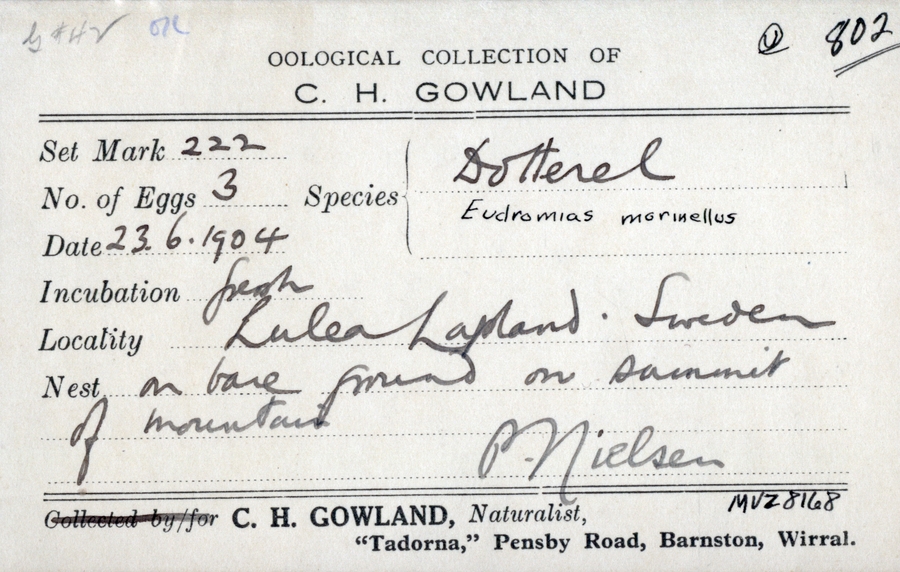 OK
802
OOLOGICAL COLLECTION OF
C. H. GOWLAND
Set Mark 222
No. of Eggs 3 Species Dotterel
Eudromias morinellus
Date 23.6.1904
Incubation fresh
Locality Lulea Lapland. Sweden
Nest on bare ground on summit
of mountain
P. Nielsen
MVZ8168
Collected by/for C. H. GOWLAND, Naturalist,
"Tadorna," Pensby Road, Barnston, Wirral.